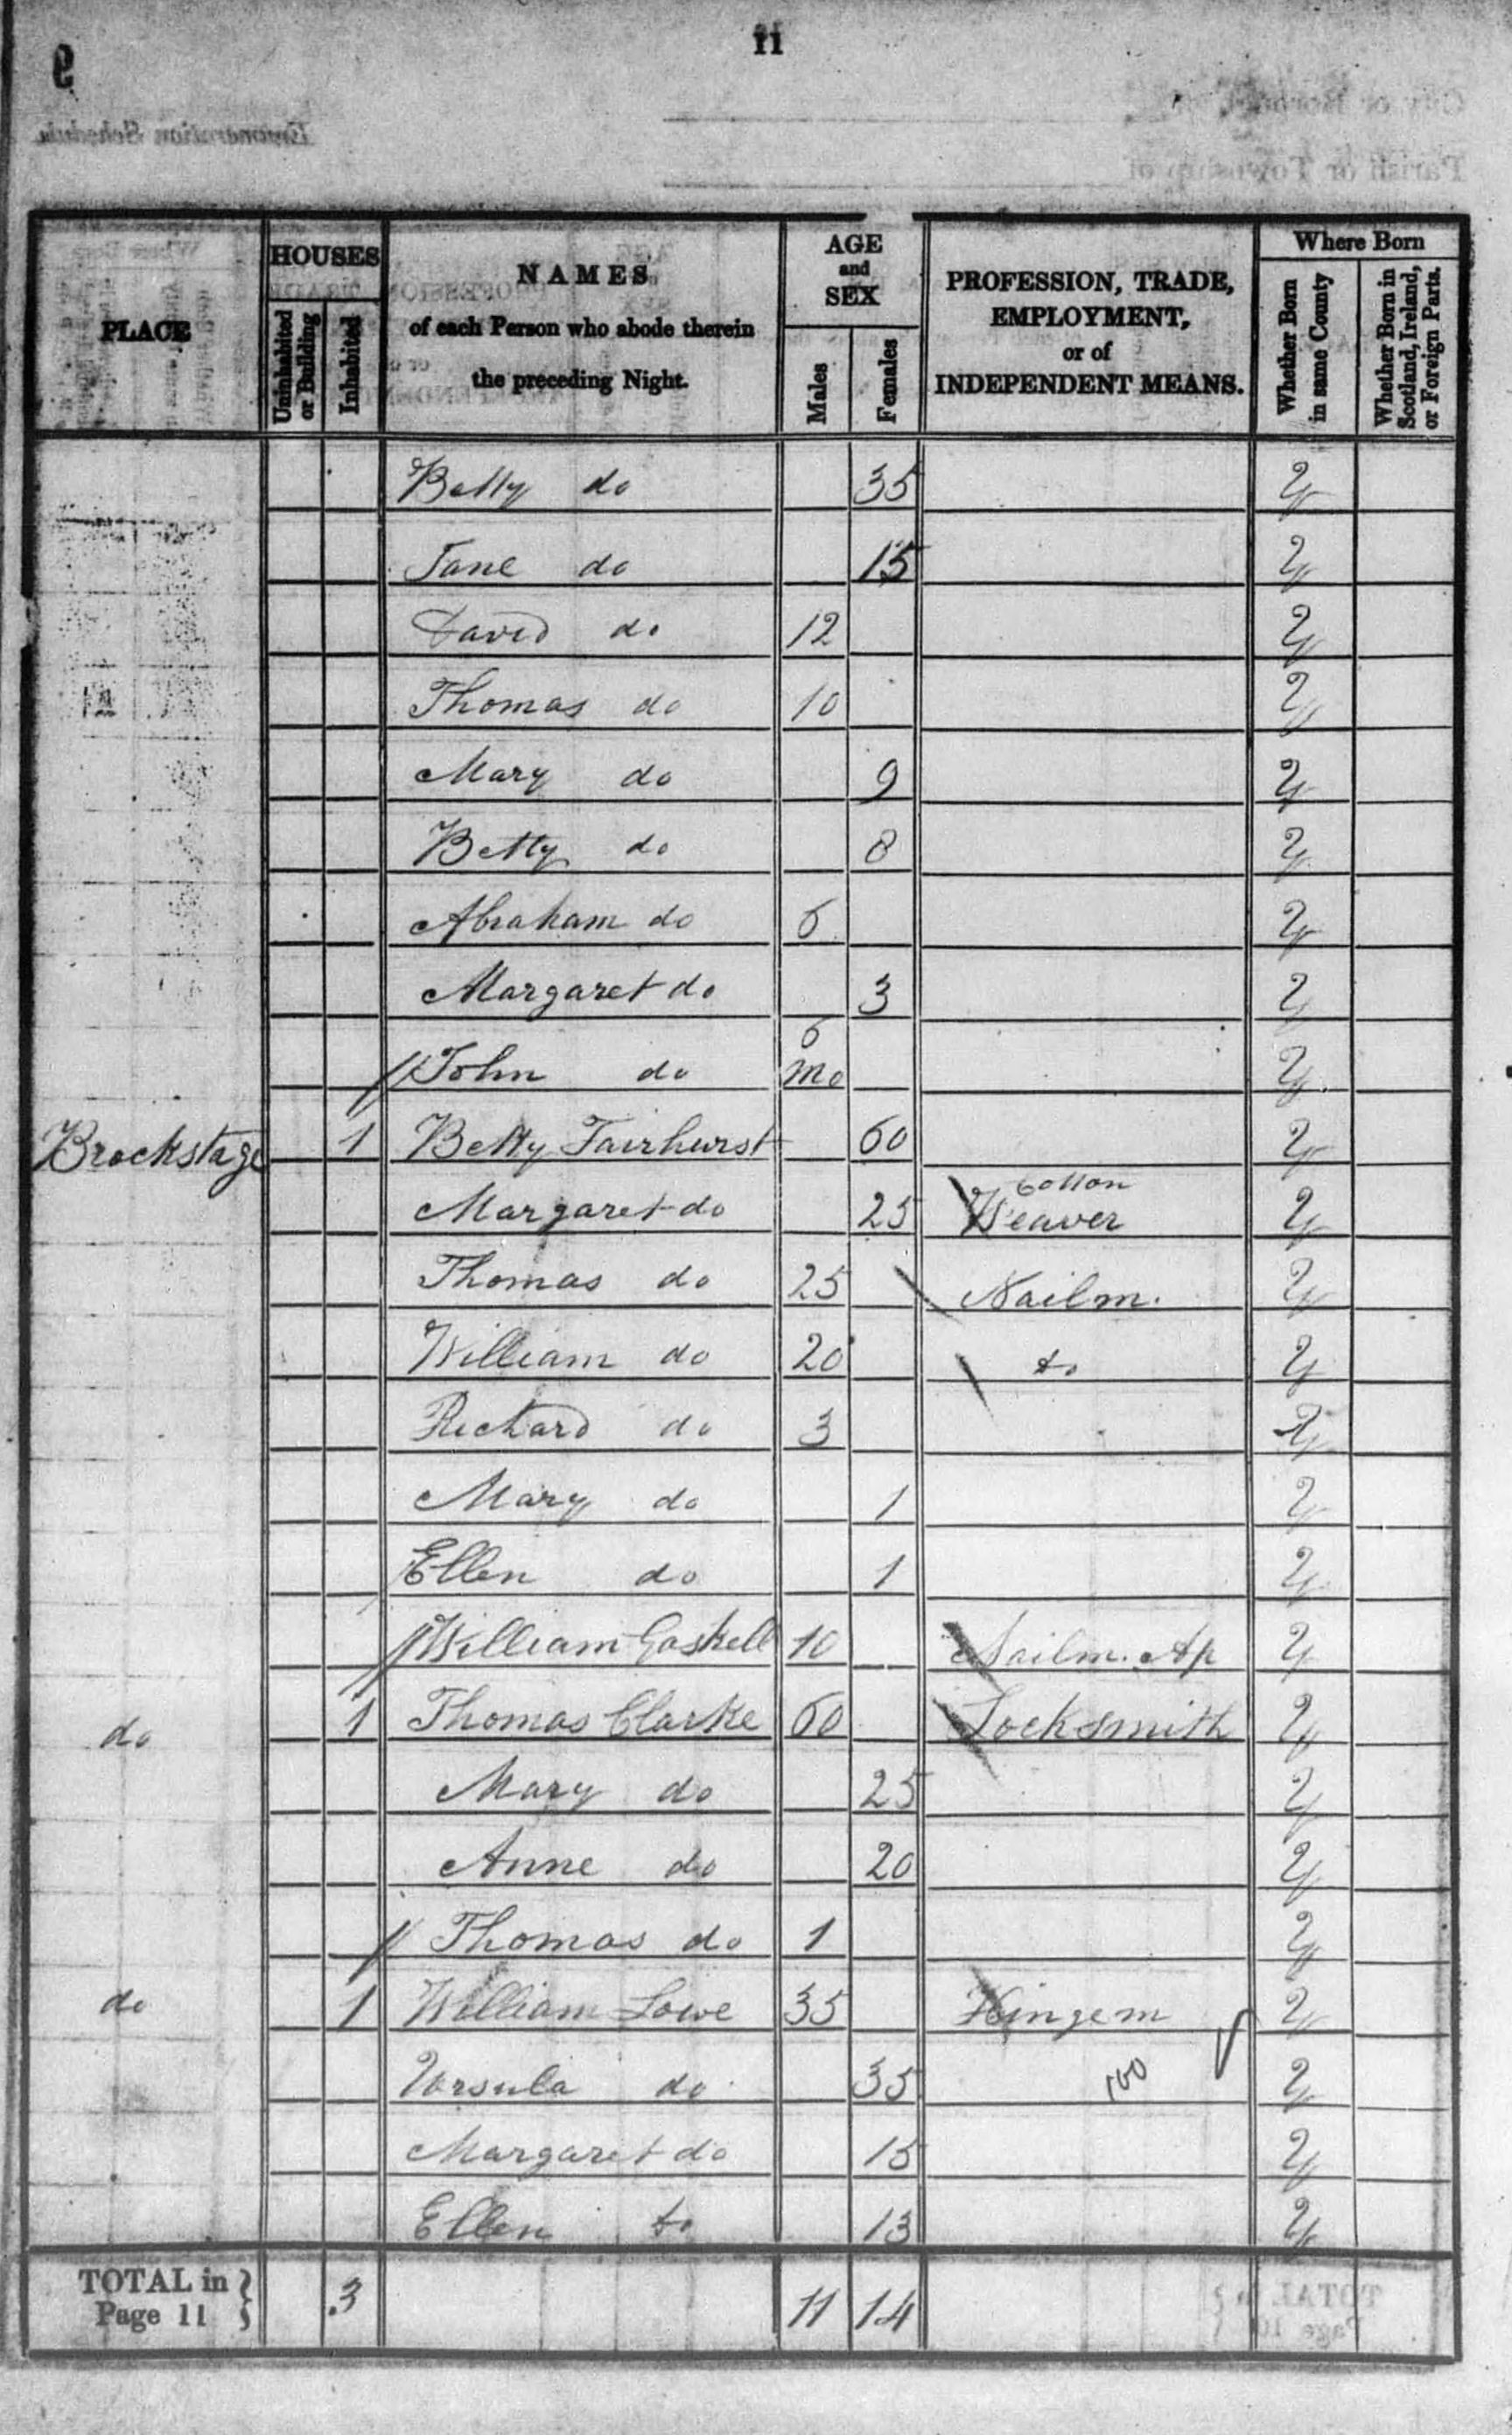 11
PLACE
HOUSES
Uninhabited or Building
Inhabited
NAMES
of each Person who abode therein
the preceding Night.
AGE
and
SEX
Males
Females
PROFESSION, TRADE,
EMPLOYMENT,
or of
INDEPENDENT MEANS.
Where Born
Whether Born in same County
Whether Born in Scotland, Ireland, or Foreign Parts.
Betty do 35 Y
Jane do 15 Y
David do 12 Y
Thomas do 10 Y
Mary do 9 Y
Betty do 8 Y
Abraham do 6 Y
Margaret do 3 Y
John do 6 mo Y
Brockstage 1 Betty Fairhurst 60 Y
Margaret do 25 Cotton Weaver Y
Thomas do 25 Nailm. Y
William do 20 do Y
Richard do 3 Y
Mary do 1 Y
Ellen do 1 Y
William Gaskell 10 Nailm. Ap Y
do 1 Thomas Clarke 60 Locksmith Y
Mary do 25 Y
Anne do 20 Y
Thomas do 1 Y
do 1 William Lowe 35 Hingem Y
Ursula do 35 Y
Margaret do 15 Y
Ellen do 13 Y
TOTAL in Page 11 } 3 11 14